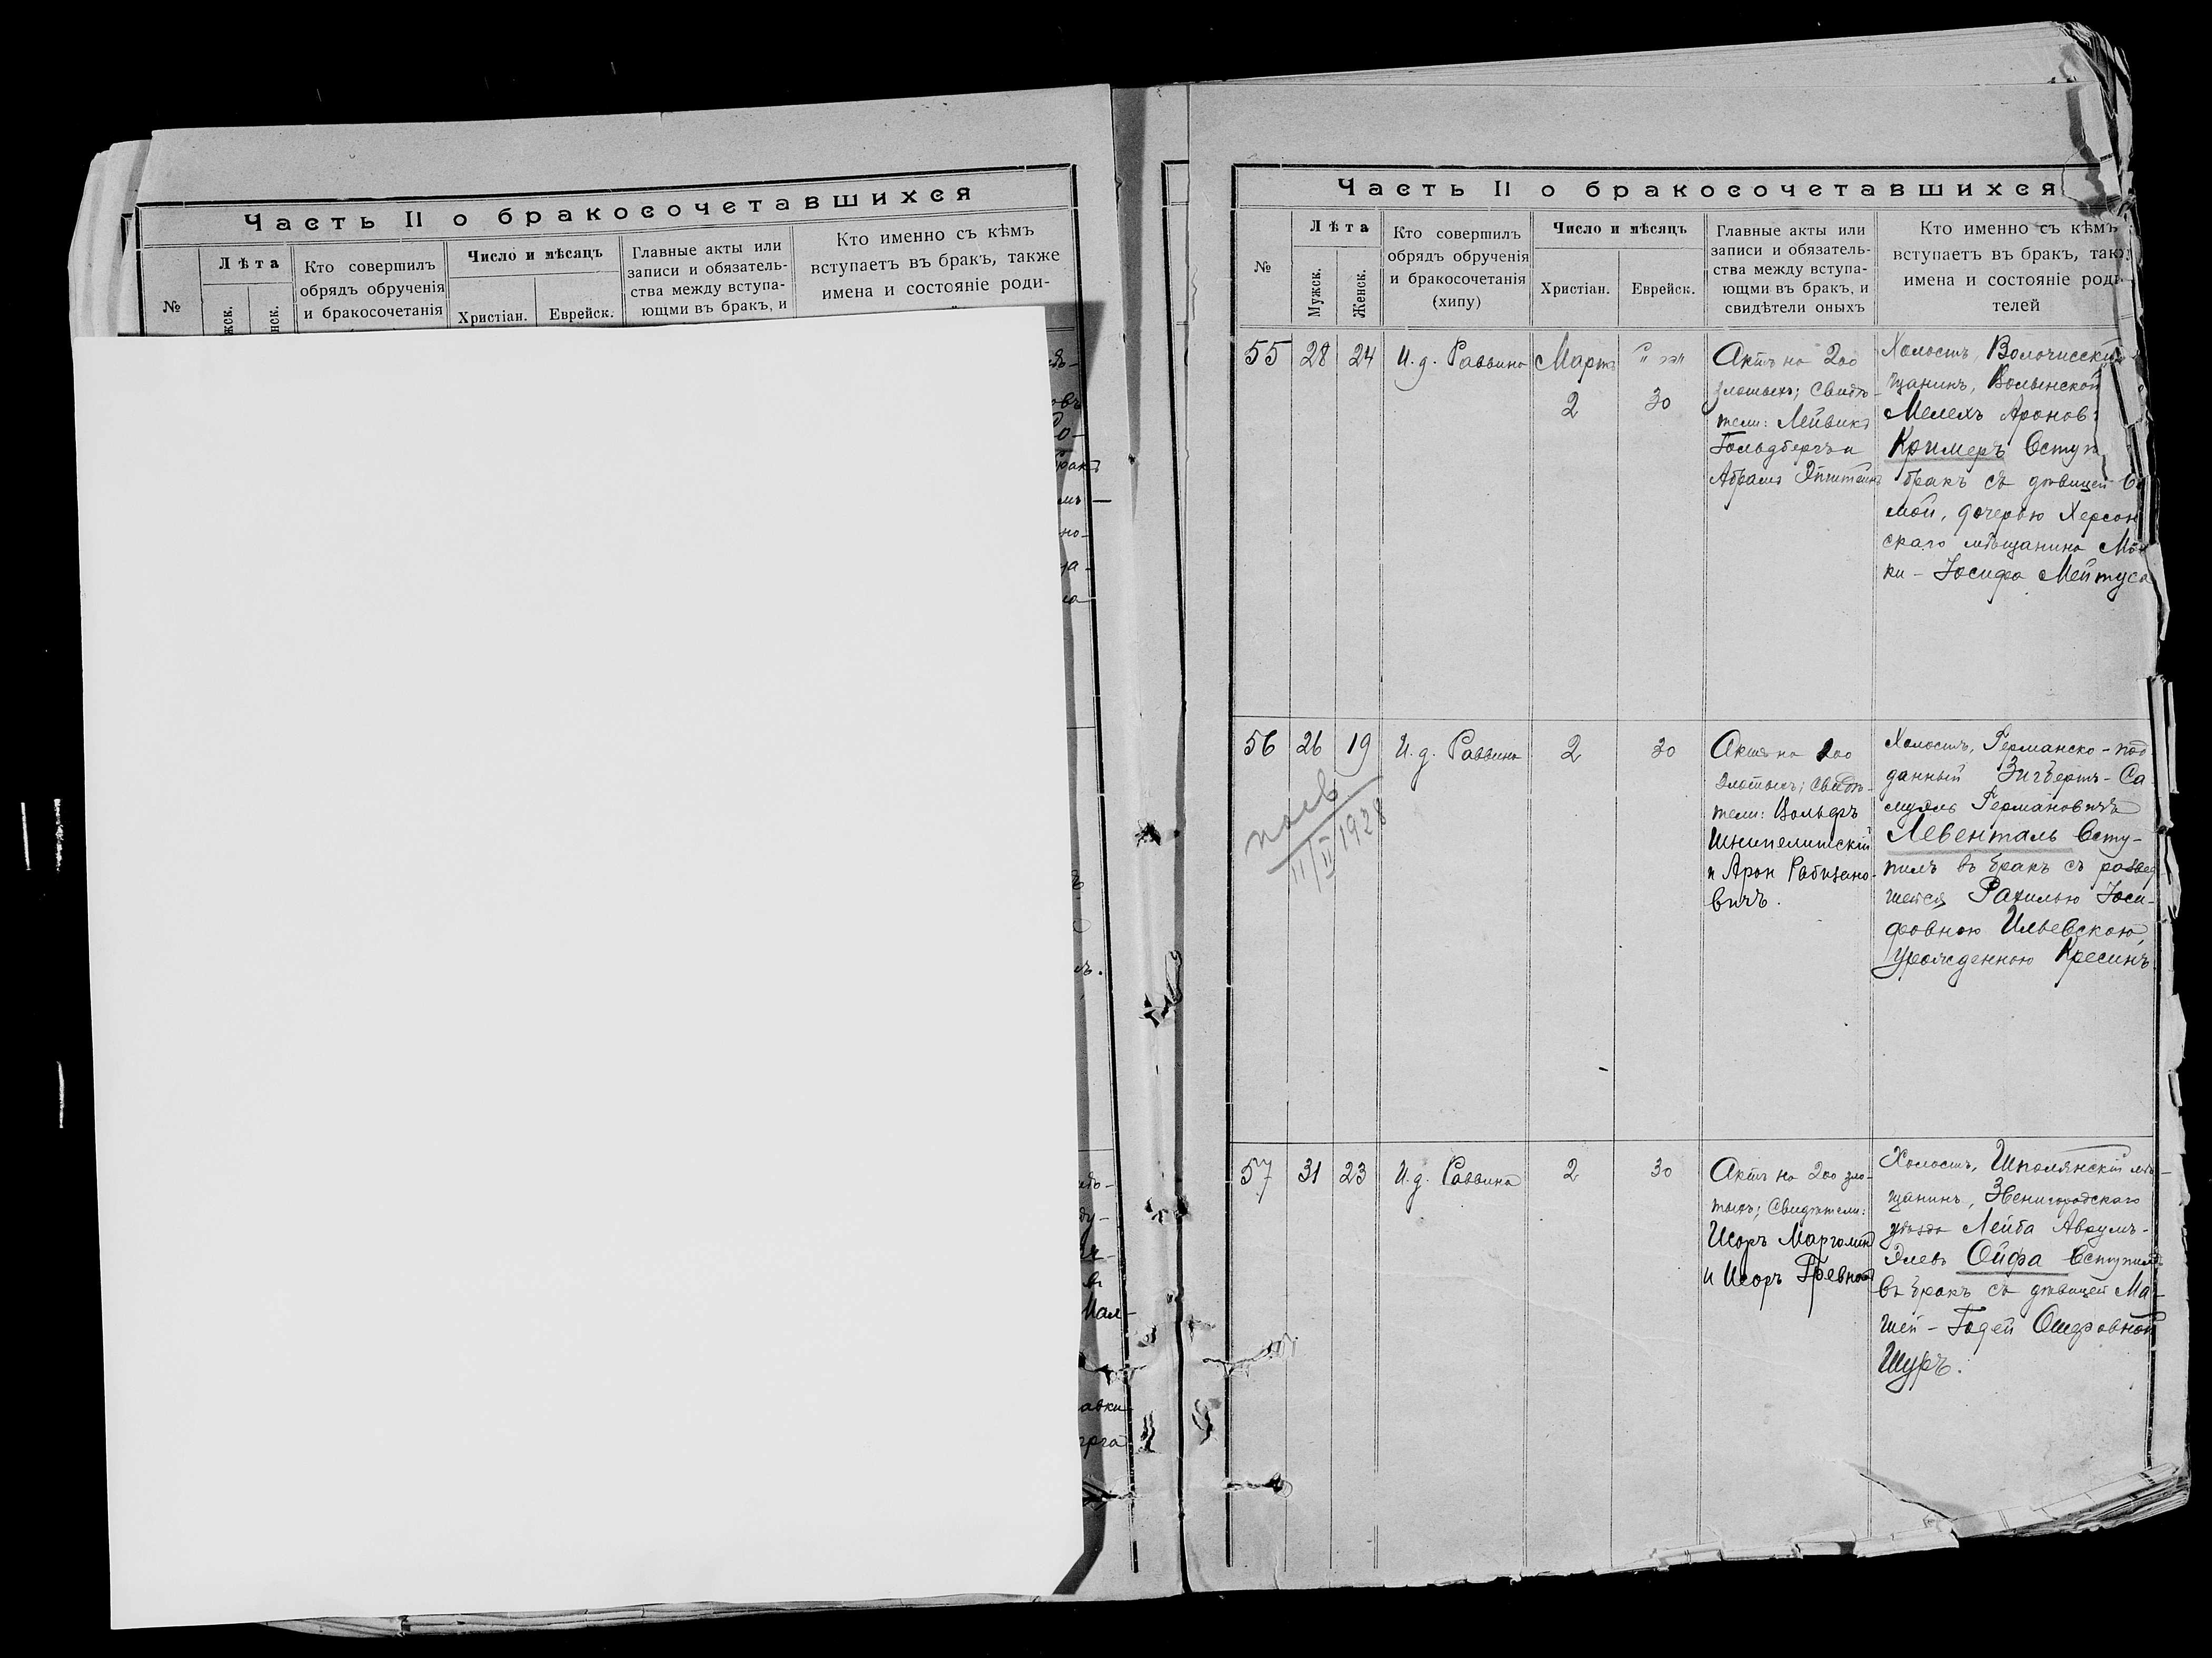 Часть II о бракосочетавшихся
№
Лѣта
Кто совершилъ
обрядъ обрученія
и бракосочетанія
Число и мѣсяцъ
Христіан.
Еврейск.
Главные акты или
записи и обязатель-
ства между вступа-
ющми въ бракъ, и
Кто именно съ кѣмъ
вступаетъ въ бракъ, также
имена и состояніе роди-
Часть II о бракосочетавшихся
№
Лѣта
Мужск.
Женск.
Кто совершилъ
обрядъ обрученія
и бракосочетанія
(хипу)
Число и мѣсяцъ
Христіан.
Еврейск.
Главные акты или
записи и обязатель-
ства между вступа-
ющми въ бракъ, и
свидѣтели оныхъ
Кто именно съ кѣмъ
вступаетъ въ бракъ,
имена и состояніе
телей
55
28
24
И. д. Раввина
Мартъ
2
30
Актъ на 200
злотыхъ; Свидѣ-
тели: Лейвикъ
Гольдбергъ и
Абрамъ Эпштейнъ
Холостъ,
щанинъ, Волынской
Мелехъ Аронов
Кримеръ Вступ
бракъ съ дѣвицей
мой, дочерью Херсон
скаго мѣщанина
ки - Іосифа Мейтуса
56
26
19
И. д. Раввина
2
30
Актъ на 200
злотыхъ; Свидѣ-
тели: Вольфъ
Шнипелишскій
и Арон Рабино-
вичъ.
11/II/1928
Холостъ, Германско-под
данный Зигбертъ-Са
муэль Германовичъ
Левенталь Всту-
пилъ въ бракъ съ развед
шейся Рахилью Іоси-
фовною Ильевскою,
урожденною Кресинъ
57
31
23
И. д. Раввина
2
30
Актъ на 200 зло-
тыхъ; Свидѣтели:
Шоръ Марголинъ
и Игоръ
Холостъ, Шполянскій мѣ-
щанинъ, Звенигородскаго
уѣзда Лейба Аврумъ-
Элевъ Ойфа Вступилъ
въ бракъ съ дѣвицей Ма-
шей - Годей Ошеровной
Шуръ.